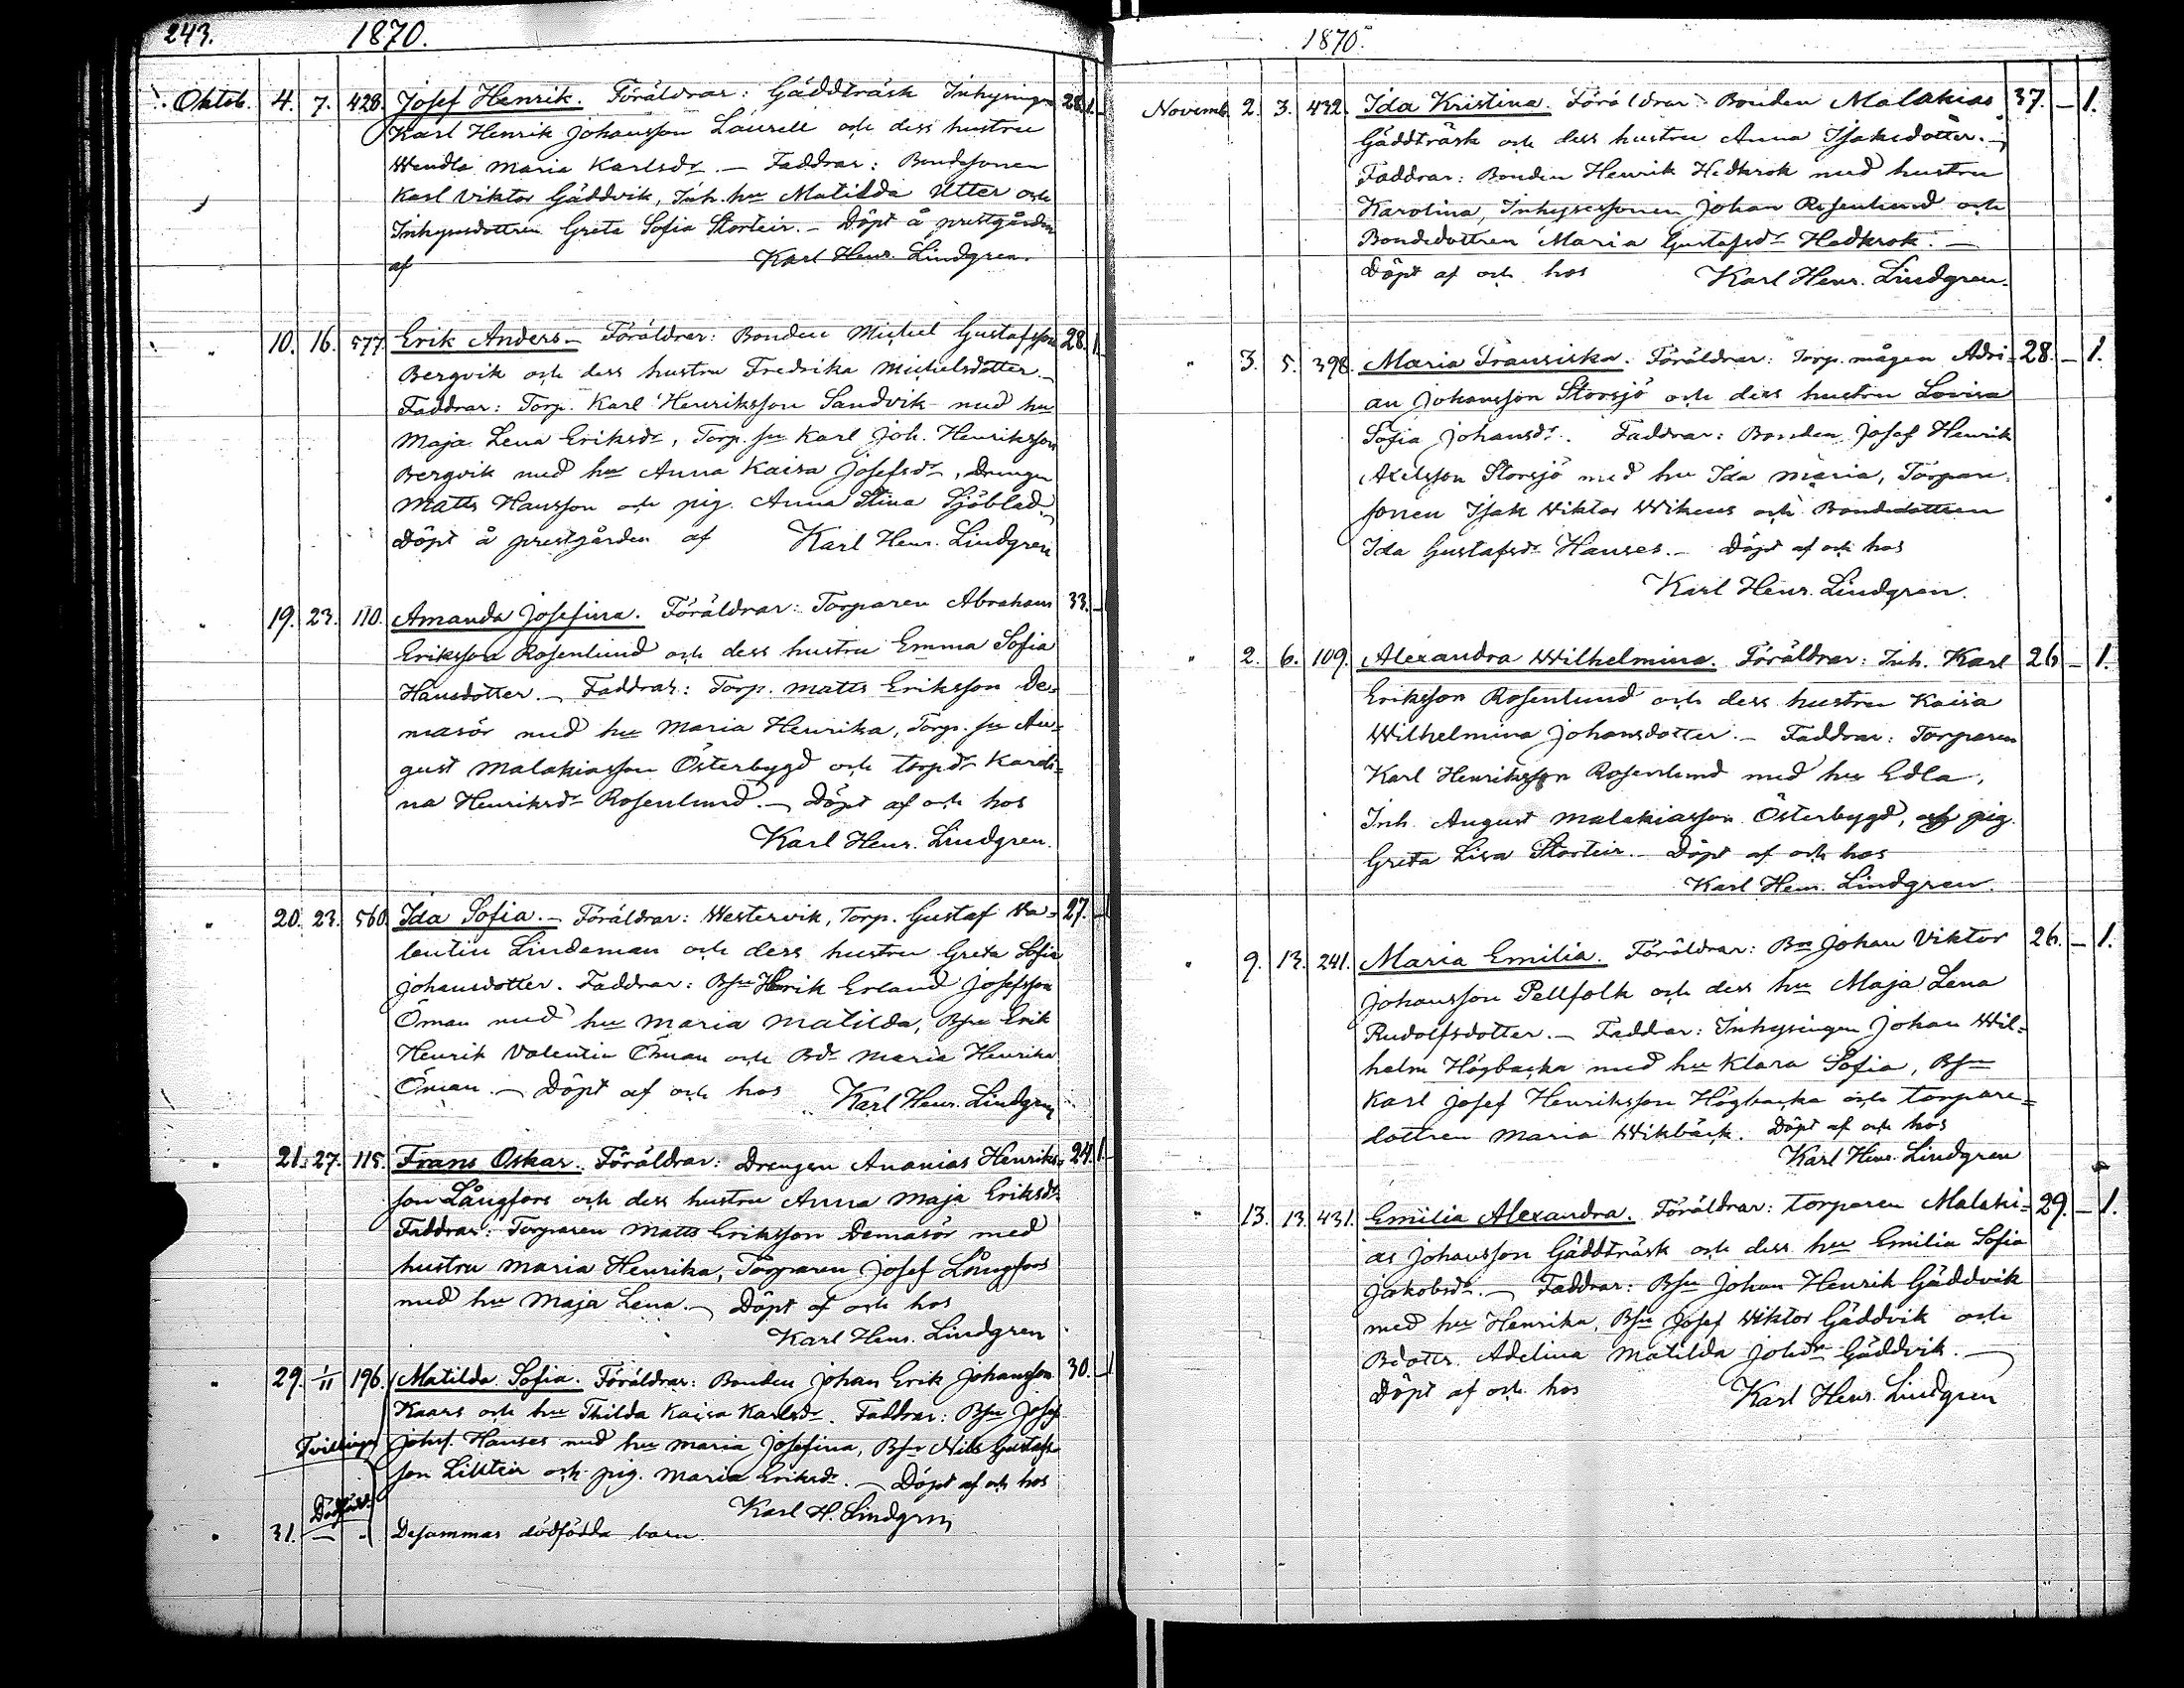 243. 1870.
Oktob. 4. 7. 428. Josef Henrik. Föräldrar: Gäddträsk Inhysingen 28. 1.
Karl Henrik Johansson Laurell och dess hustru
Wendla Maria Karlsdr. — Faddrar: Bondsonen
Karl Viktor Gäddvik, Inh. hu Matilda Utter och
Inhysesdottren Greta Sofia Storteir. — Döpt å prestgården
af Karl Henr. Lindgren.
" 10. 16. 577. Erik Anders — Föräldrar: Bonden Michel Gustafsson 28. 1.
Bergvik och dess hustru Fredrika Michelsdotter. —
Faddrar: Torp. Karl Henriksson Sandvik med hu
Maja Lena Eriksdr, Torp. sn Karl Joh. Henriksson
Bergvik med hu Anna Kaisa Josefsdr, Drengen
Matts Hansson och pig. Anna Stina Sjöblad. —
Döpt å prestgården af Karl Henr. Lindgren
" 19. 23. 110. Amanda Josefina. Föräldrar: Torparen Abraham 33. —
Eriksson Rosenlund och dess hustru Emma Sofia
Hansdotter. — Faddrar: Torp. Matts Eriksson De=
masör med hu Maria Henrika, Torp. sn Au=
gust Malakiasson Österbygd och torpdr Karoli=
na Henriksdr Rosenlund. — Döpt af och hos
Karl Henr. Lindgren.
" 20. 23. 560. Ida Sofia. — Föräldrar: Westervik, Torp. Gustaf Va= 27. —
lentin Lindeman och dess hustru Greta Sofia
Johansdotter. Faddrar: Bsn Erik Erland Josefsson
Öman med hu Maria Matilda, Bsn Erik
Henrik Valentin Öman och Bdr Maria Henrika
Öman. — Döpt af och hos Karl Henr. Lindgren
" 21. 27. 115. Frans Oskar. Föräldrar: Drengen Ananias Henriks= 24. 1.
son Långfors och dess hustru Anna Maja Eriksdr.
Faddrar: Torparen Matts Eriksson Demasör med
hustru Maria Henrika, Torparen Josef Långfors
med hu Maja Lena. — Döpt af och hos
Karl Henr. Lindgren
" 29. 1/11 196. Matilda Sofia. Föräldrar: Bonden Johan Erik Johansson 30. — 1
Kaars och hu Thilda Kaisa Karlsdr. Faddrar: Bsn Josef
Tvillingar Johsf. Hanses med hu Maria Josefina, Bsn Nils Gustafs
son Lillteir och pig. Maria Eriksdr. — Döpt af och hos
Karl H. Lindgren
Dödfödd.
" 31. — " Desammas dödfödda barn.
1870.
Novemb. 2. 3. 432. Ida Kristina. Föräldrar: Bonden Malakias 37. — 1.
Gäddträsk och dess hustru Anna Isaksdotter. —
Faddrar: Bonden Henrik Hedkrok med hustru
Karolina, Inhysessonen Johan Rosenlund och
Bondedottren Maria Gustafsdr Hedkrok. —
Döpt af och hos Karl Henr. Lindgren.
" 3. 5. 398. Maria Fransiska. Föräldrar: Torp. mågen Adri= 28. — 1.
an Johansson Storsjö och dess hustru Lovisa
Sofia Johansdr. Faddrar: Bonden Josef Henrik
Axelsson Storsjö med hu Ida Maria, Torpare
sonen Isak Wiktor Wikens och Bondedottren
Ida Gustafsdr Hanses. — Döpt af och hos
Karl Henr. Lindgren.
" 2. 6. 109. Alexandra Wilhelmina. Föräldrar: Inh. Karl 26 — 1.
Eriksson Rosenlund och dess hustru Kaisa
Wilhelmina Johansdotter. — Faddrar: Torparen
Karl Henriksson Rosenlund med hu Edla,
Inh. August Malakiasson Österbygd, och pig.
Greta Lisa Storteir. — Döpt af och hos
Karl Henr. Lindgren.
" 9. 13. 241. Maria Emilia. Föräldrar: Bn Johan Viktor 26. — 1.
Johansson Pellfolk och dess hu Maja Lena
Rudolfsdotter. — Faddrar: Inhysingen Johan Wil=
helm Högbacka med hu Klara Sofia, Bsn
Karl Josef Henriksson Högbacka och torpare=
dottren Maria Wikbäck. Döpt af och hos
Karl Henr. Lindgren
" 13. 13. 431. Emilia Alexandra. Föräldrar: torparen Malaki= 29. — 1.
as Johansson Gäddträsk och dess hu Emilia Sofia
Jakobsdr. — Faddrar: Bsn Johan Henrik Gäddvik
med hu Henrika, Bsn Josef Wiktor Gäddvik och
Bdottr. Adelina Matilda Johdr Gäddvik. —
Döpt af och hos Karl Henr. Lindgren